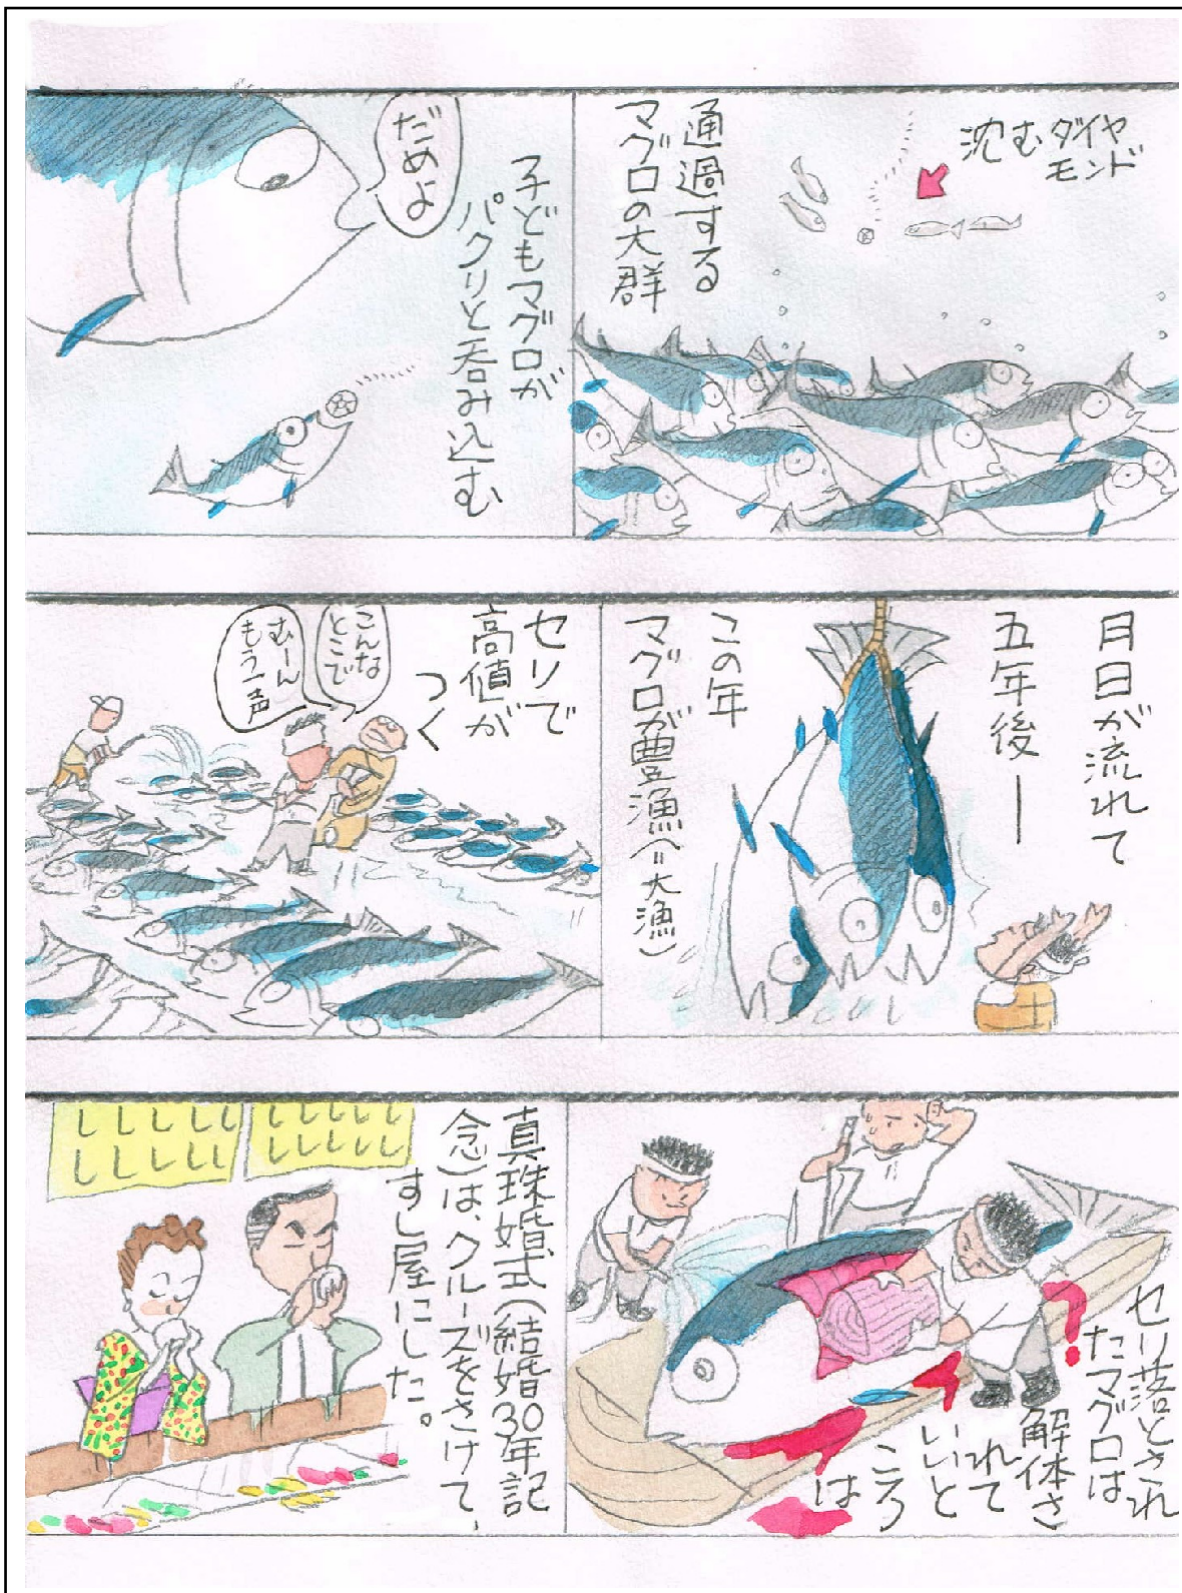 沈むダイヤ
モンド
通過する
マグロの大群
だめよ
子どもマグロが
パクリと呑み込む
月日が流れて
五年後―
この年
マグロが豊漁(大漁)
セリで
高値が
つく
こんな
とこで
むーん
もう一声
セリ落とされ
たマグロは
解体さ
れて
いいと
ころ
は
真珠婚式(結婚30年記
念)は、クルーズをさけて、
すし屋にした。